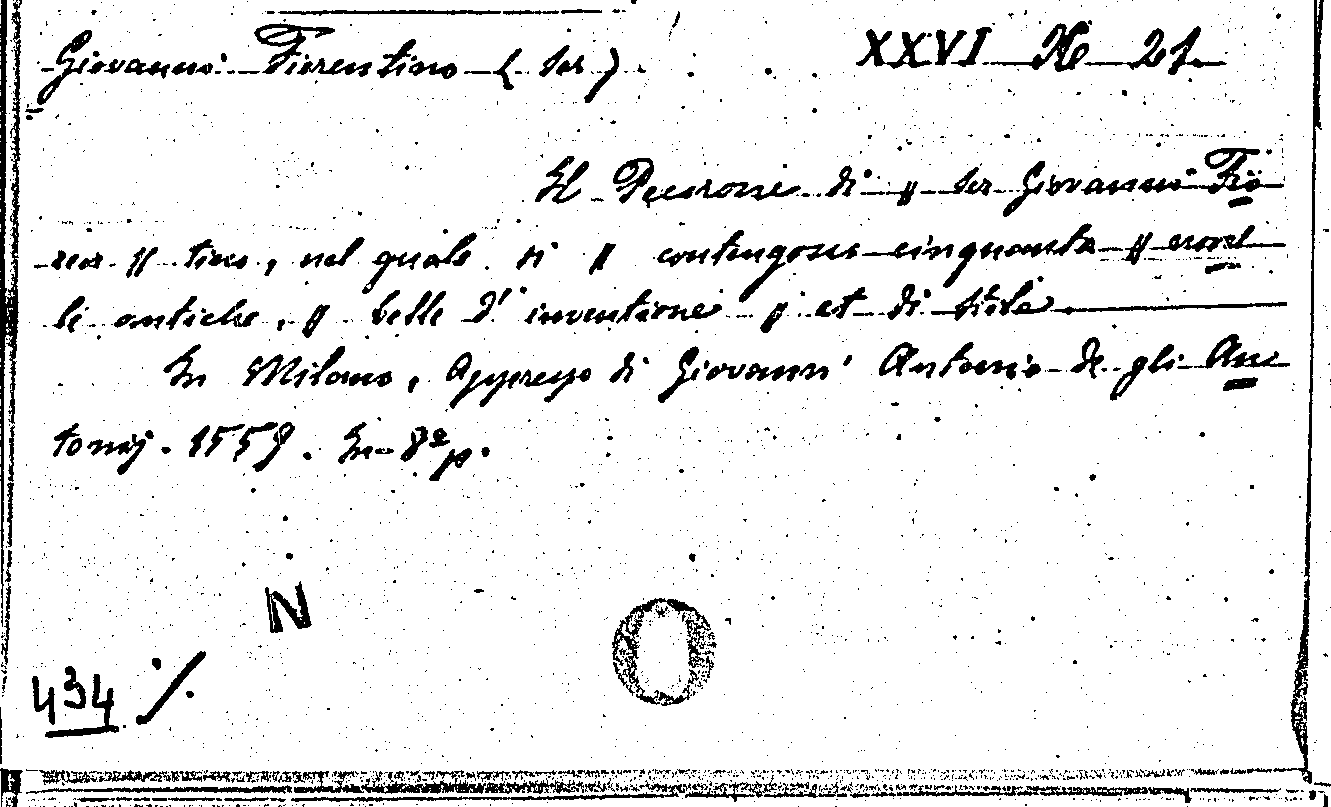 Giovanni Fiorentino (ser) XXVI 21.
Il Pecorone di || ser Giovanni Fio
ren || tino, nel quale si || contengono cinquanta || novel
le antiche, || belle d'inventione || et di stile.
In Milano, Appresso di Giovann' Antonio de gli An
tonij. 1559. In-8º p.
N
434 %